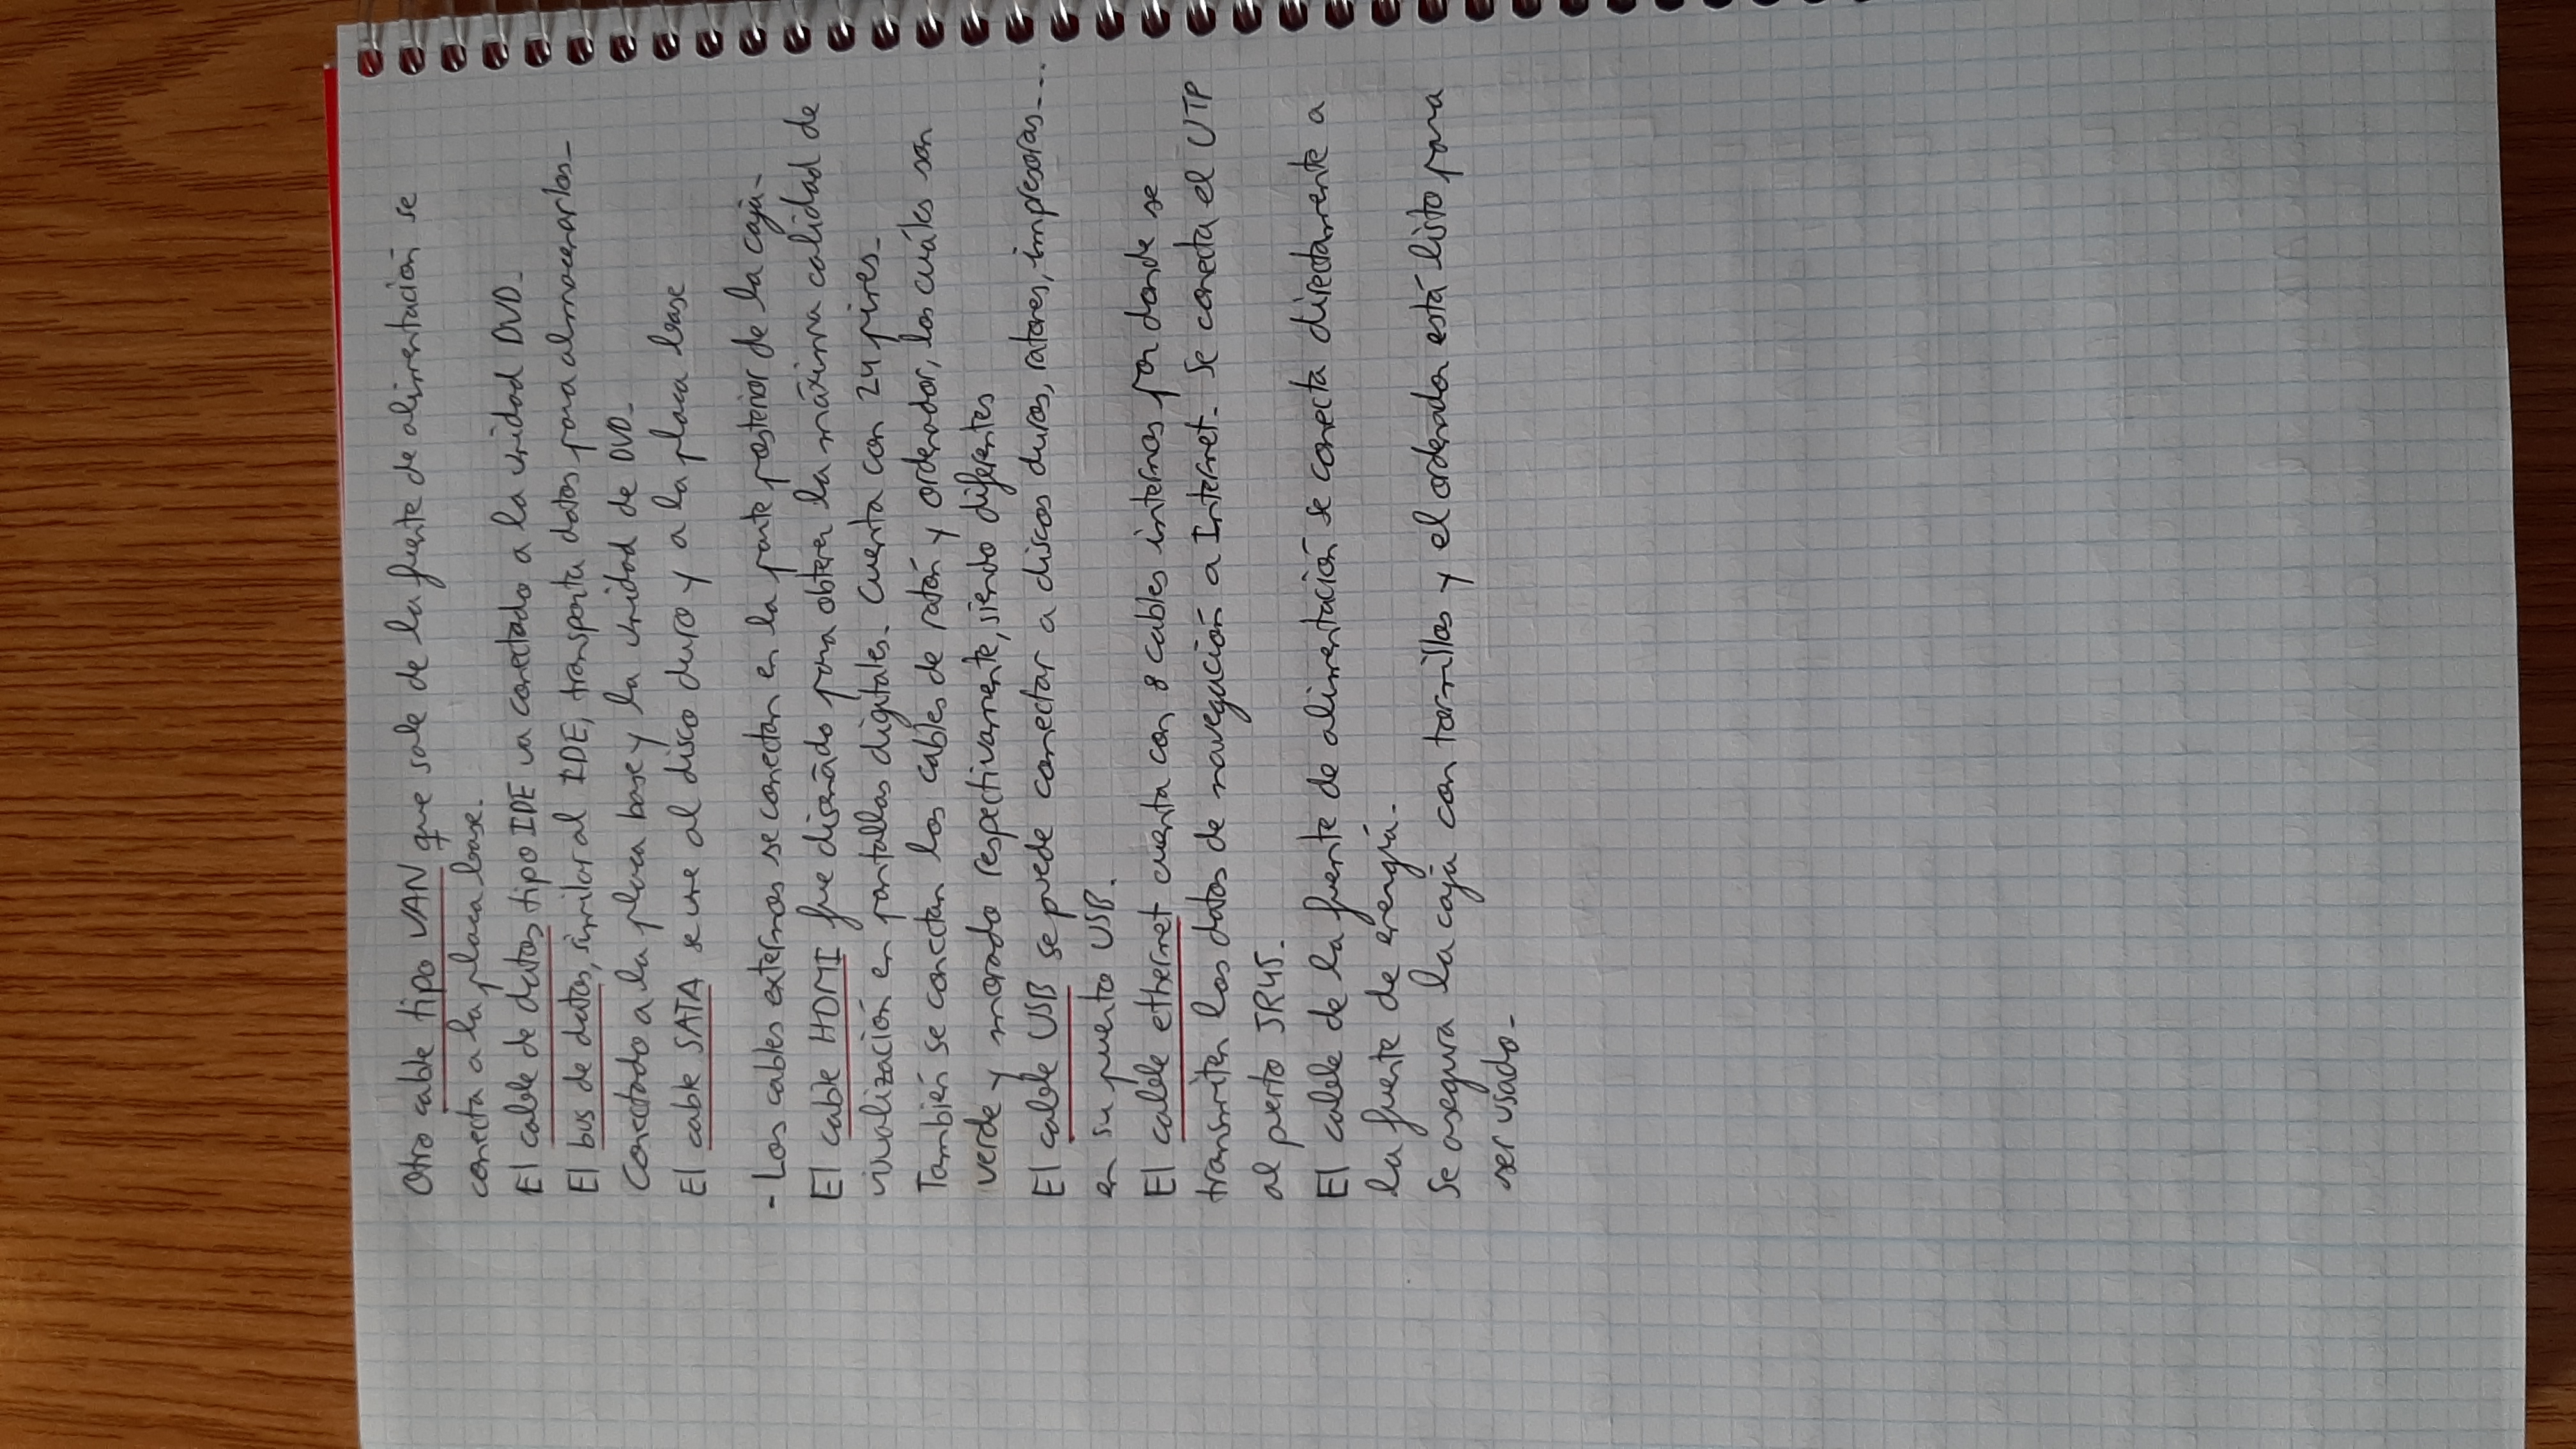 Otro cable tipo VAN que sale de la fuente de alimentación se
conecta a la placa base.
El cable de datos tipo IDE va conectado a la unidad DVD.
El bus de datos, similar al IDE, transporta datos para almacenarlos.
Conectado a la placa base y la unidad de DVD.
El cable SATA se une al disco duro y a la placa base
- Los cables externos se conectan en la parte posterior de la caja.
El cable HDMI fue diseñado para obtener la máxima calidad de
visualización en pantallas digitales. Cuenta con 24 pines.
También se conectan los cables de ratón y ordenador, los cuáles son
verde y morado respectivamente, siendo diferentes
El cable USB se puede conectar a discos duros, ratones, impresoras...
en su puerto USB.
El cable ethernet cuenta con 8 cables internos por donde se
transmiten los datos de navegación a Internet. Se conecta el UTP
al puerto JR45.
El cable de la fuente de alimentación se conecta directamente a
la fuente de energía.
Se asegura la caja con tornillos y el ordenador está listo para
ser usado.